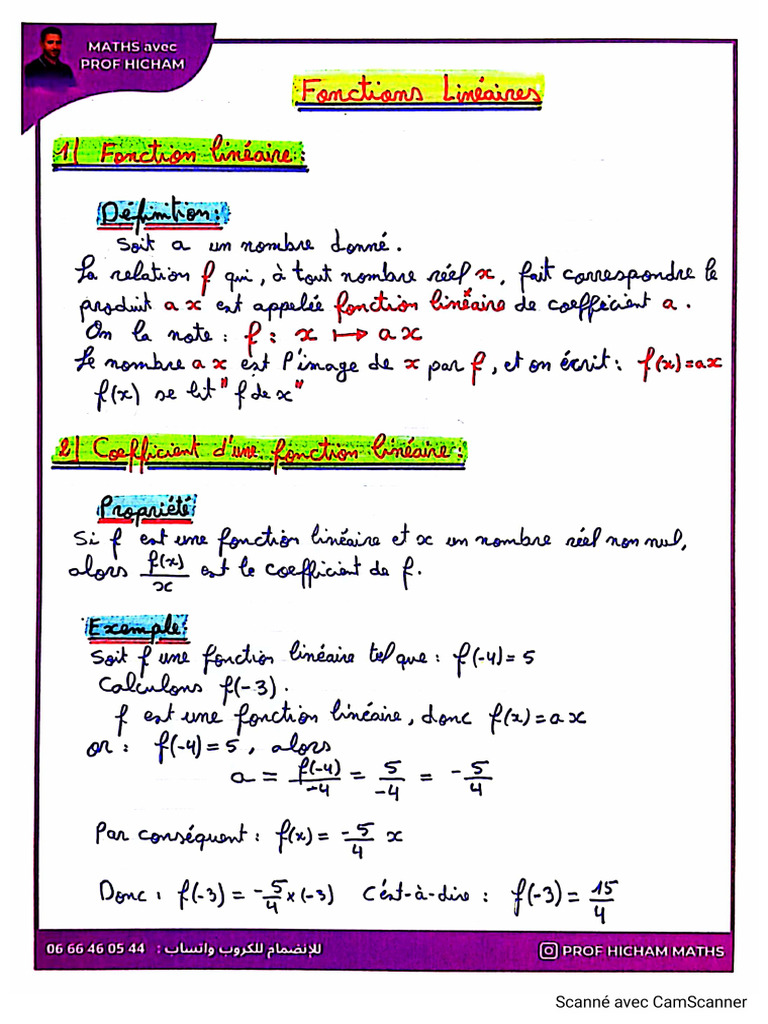 MATHS avec
PROF HICHAM
Fonctions Linéaires
1/ Fonction linéaire :
Définition :
Soit a un nombre donné.
La relation f qui, à tout nombre réel x, fait correspondre le
produit a x est appelée fonction linéaire de coefficient a.
On la note : f : x ⟼ a x
Le nombre a x est l'image de x par f, et on écrit : f(x) = ax
f(x) se lit " f de x"
2/ Coefficient d'une fonction linéaire :
Propriété
Si f est une fonction linéaire et x un nombre réel non nul,
alors f(x)/x est le coefficient de f.
Exemple
Soit f une fonction linéaire tel que : f(-4) = 5
Calculons f(-3).
f est une fonction linéaire, donc f(x) = a x
or : f(-4) = 5, alors
a = f(-4)/-4 = 5/-4 = -5/4
Par conséquent : f(x) = -5/4 x
Donc : f(-3) = -5/4 x (-3) C'est-à-dire : f(-3) = 15/4
06 66 46 05 44 : للإنضمام للكروب واتساب
PROF HICHAM MATHS
Scanné avec CamScanner